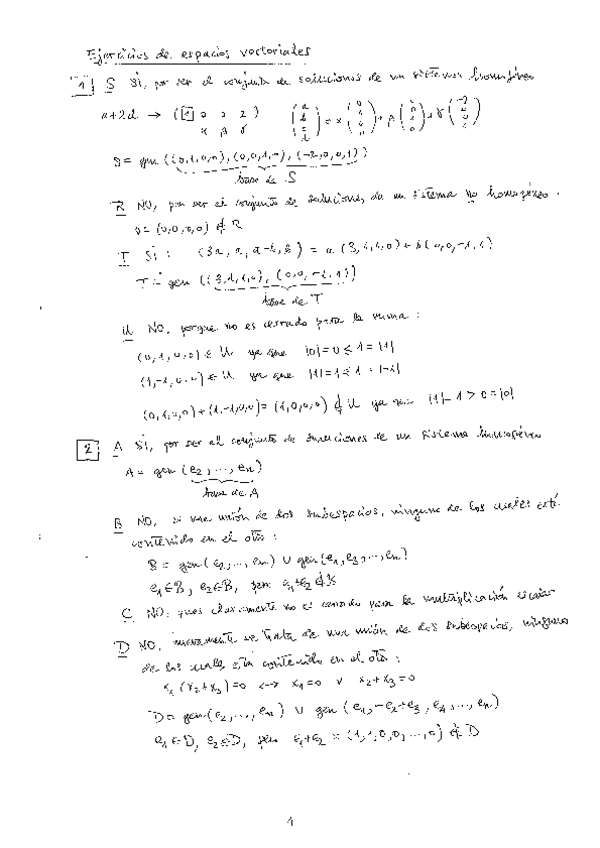 Ejercicios de espacios vectoriales
1 S Sí, por ser el conjunto de soluciones de un sistema homogéneo
a+2d → (1 0 0 2)
α β γ
S = gen((0,1,0,0), (0,0,1,0), (-2,0,0,1))
base de S
R NO, por ser el conjunto de soluciones de un sistema no homogéneo.
0=(0,0,0,0) ∉ R
T Sí : (3a, a, a-b, b) = a(3,1,1,0)+b(0,0,-1,1)
T = gen((3,1,1,0), (0,0,-1,1))
base de T
U NO, porque no es cerrado para la suma :
(0,1,0,0) ∈ U ya que |0|=0 ≤ 1 = |1|
(1,-1,0,0) ∈ U ya que |1|=1 ≤ 1 = |-1|
(0,1,0,0)+(1,-1,0,0) = (1,0,0,0) ∉ U ya que |1|=1 > 0 = |0|
2 A Sí, por ser el conjunto de soluciones de un sistema homogéneo
A = gen(e2, ..., en)
base de A
B NO, es una unión de dos subespacios, ninguno de los cuales está
contenido en el otro :
B = gen(e2, ..., en) ∪ gen(e1, e3, ..., en)
e1 ∈ B, e2 ∈ B, pero e1+e2 ∉ B
C NO, pues claramente no es cerrado para la multiplicación escalar
D NO, nuevamente se trata de una unión de dos subespacios, ninguno
de los cuales está contenido en el otro :
x1(x2+x3)=0 ↔ x1=0 ∨ x2+x3=0
D = gen(e2, ..., en) ∪ gen(e1, -e2+e3, e4, ..., en)
e1 ∈ D, e2 ∈ D, pero e1+e2 = (1,1,0,0,...,0) ∉ D
1